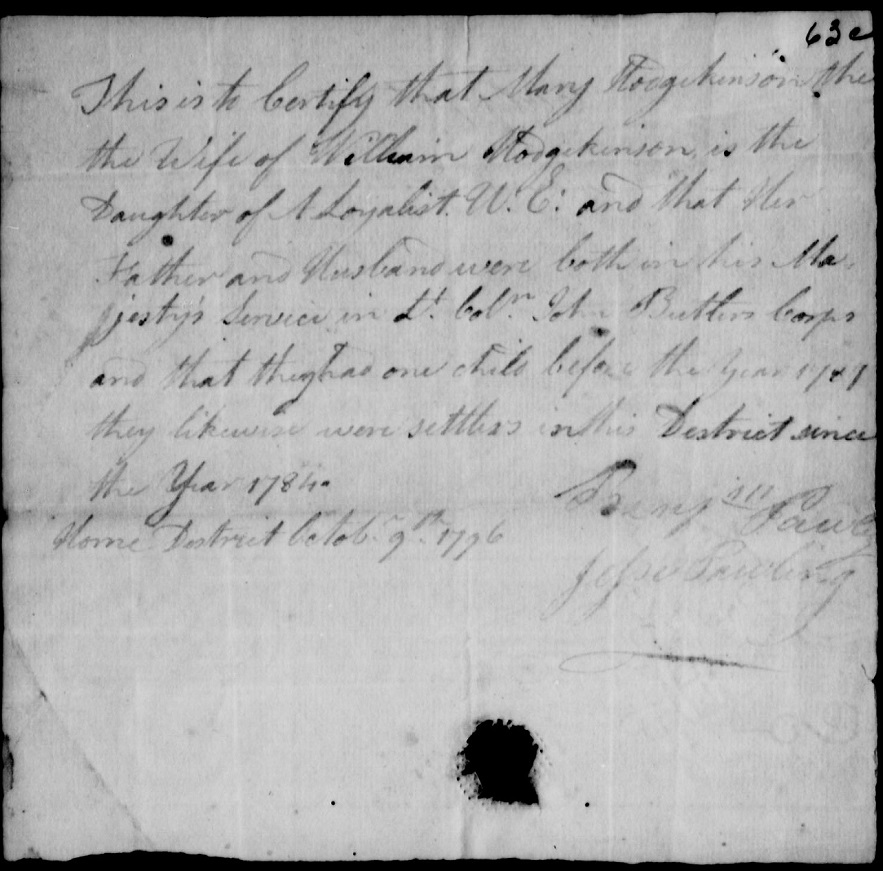 63e
This is to Certify that Mary Hodgekinson the
the Wife of William Hodgekinson is the
Daughter of A Loyalist. U: E: and that Her
Father and Husband were both in his Ma-
jesty's Service in Lt. Coln. John Butlers Corps
and that they had one child before the Year
they likewise were settlers in this District since
the Year 1784.
Benjn Pawling
Home District Octobr. 9th. 1796
Jesse Pawling